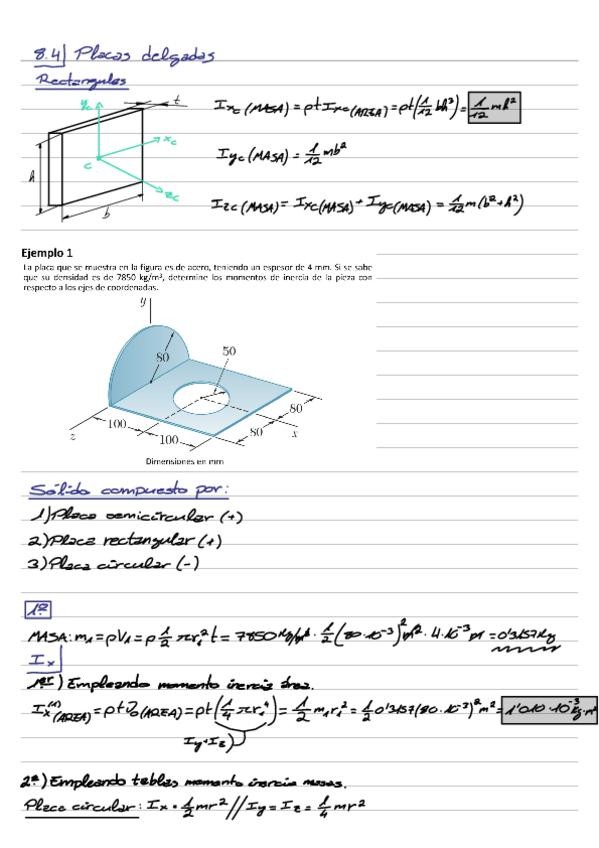 8.4| Placas delgadas
Rectangulas
yc t
Ixc (MASA) = ρt Ixc (AREA) = ρt(1/12 bh³) = 1/12 mh²
xc
c
h
zc
b
Iyc (MASA) = 1/12 mb²
Izc (MASA) = Ixc (MASA) + Iyc (MASA) = 1/12 m(b²+h²)
Ejemplo 1
La placa que se muestra en la figura es de acero, teniendo un espesor de 4 mm. Si se sabe
que su densidad es de 7850 kg/m³, determine los momentos de inercia de la pieza con
respecto a los ejes de coordenadas.
y
80
50
100
100
80
80
z
x
Dimensiones en mm
Sólido compuesto por:
1) Placa semicircular (+)
2) Placa rectangular (+)
3) Placa circular (-)
1º
MASA: m₁ = ρV₁ = ρ 1/2 πr₁² t = 7850 Kg/m³ · 1/2 (80·10⁻³)² m² · 4·10⁻³ m = 0'3157 Kg
Ix
1º) Empleando momento inercia área.
Ix⁽¹⁾(AREA) = ρt J₀(AREA) = ρt(1/4 πr₁⁴) = 1/2 m₁r₁² = 1/2 0'3157(80·10⁻³)² m² = 1'010·10⁻³ Kg·m²
Iy+Iz
2º) Empleando tablas momento inercia masas.
Placa circular: Ix = 1/2 mr² // Iy = Iz = 1/4 mr²